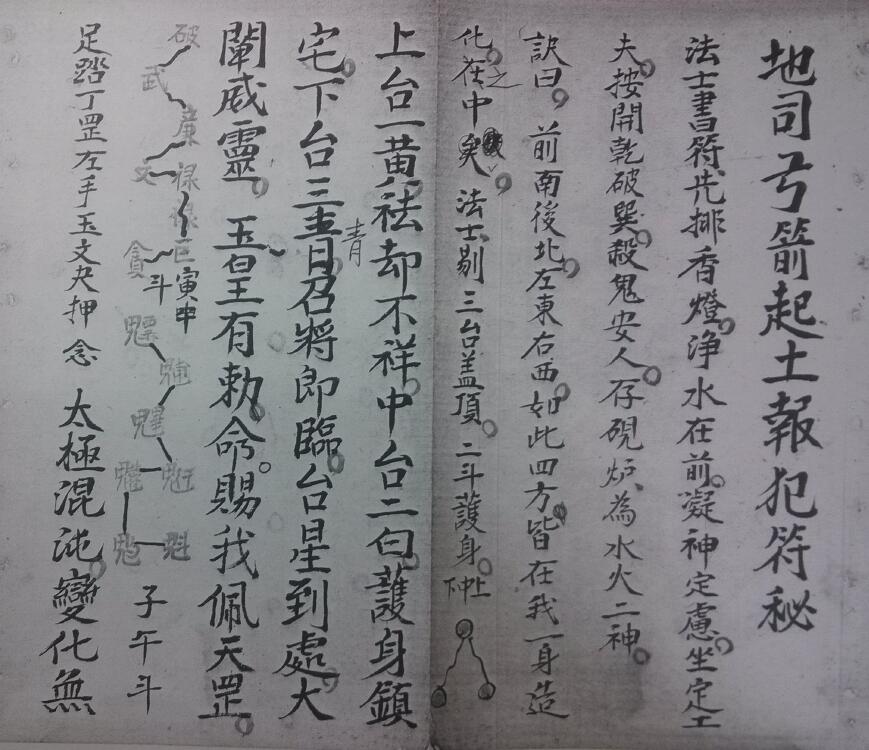 地司弓箭起土報犯符秘
法士書符先排香燈淨水在前凝神定慮坐定工
夫按開乾破巽殺鬼安人存硯炉為水火二神
訣曰前南後北左東右西如此四方皆在我一身造
化在之中矣法士剔三台盖頂二斗護身上中下
上台一黄祛却不祥中台二白護身鎮
宅下台三青召將即臨台星到處大
闡威靈玉皇有勅命賜我佩天罡
破武廉文祿巨貪
寅申斗
魒魓魁
子午斗
足踏丁罡左手玉文夬押念太極混沌變化無